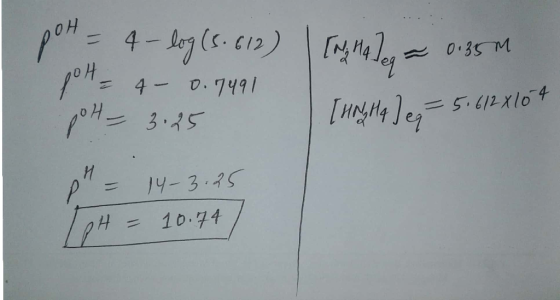 pOH = 4 - log(5.612)
pOH = 4 - 0.7491
pOH = 3.25
pH = 14 - 3.25
pH = 10.74
[N2H4]eq ≈ 0.35 M
[HN2H4]eq = 5.612 × 10^-4